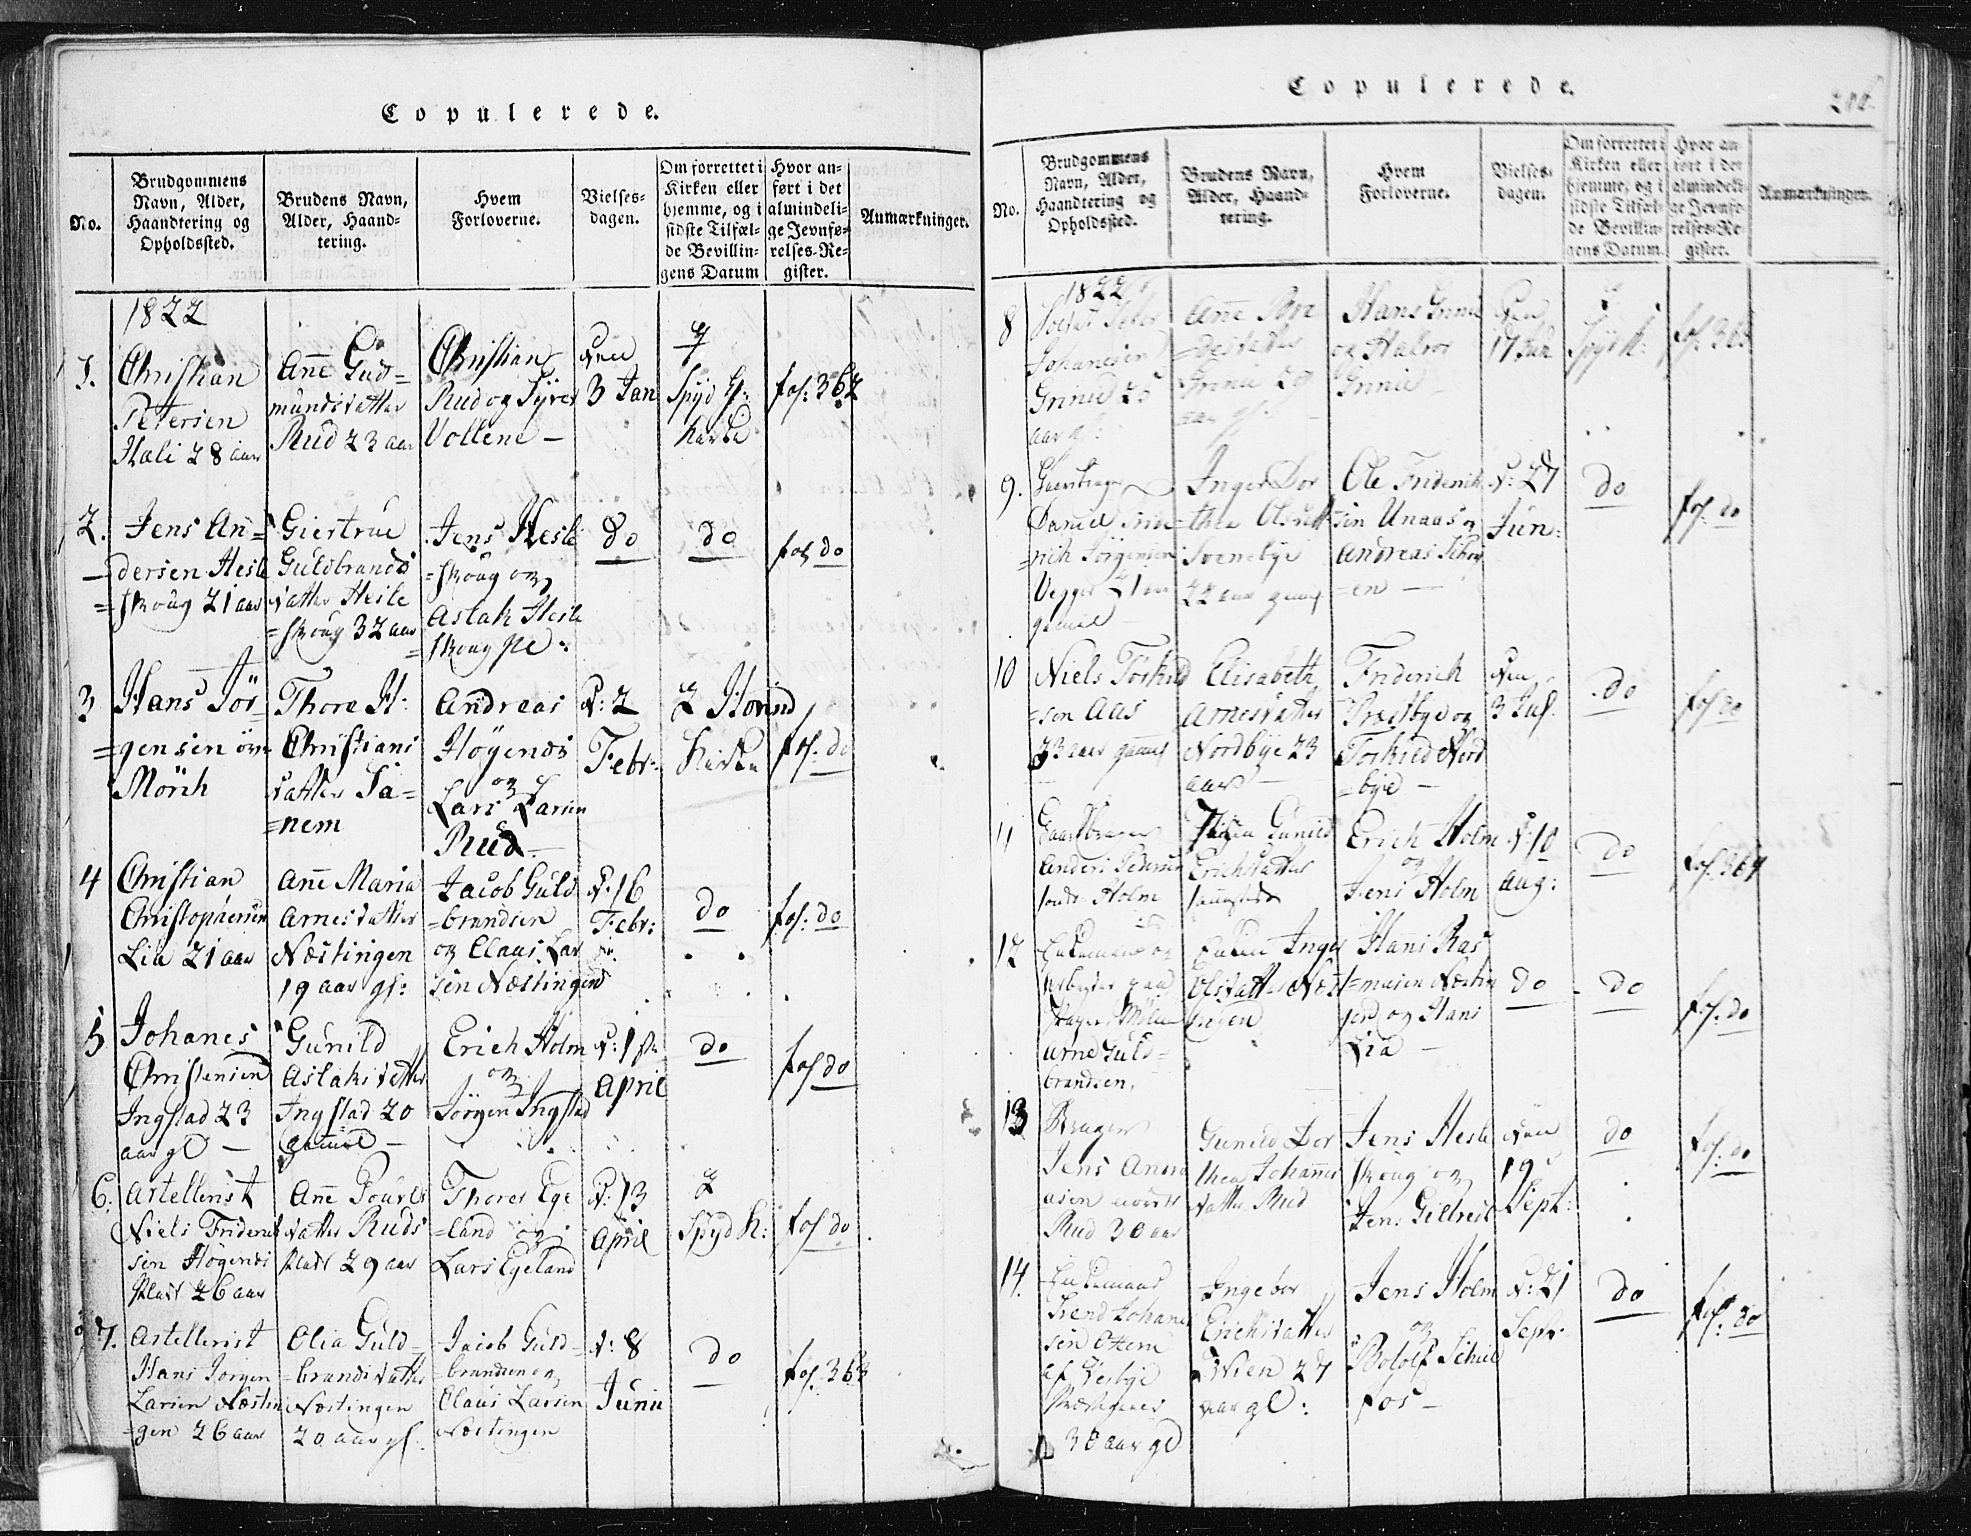 Copulerede.
No.
Brudgommens
Navn, Alder,
Haandtering og
Opholdssted.
Brudens Navn,
Alder, Haand-
tering.
Hvem
Forloverne.
Vielses-
dagen.
Om forrettet i
Kirken eller
hjemme, og i
sidste Tilfæl-
de Bevillin-
gens Datum
Hvor an-
ført i det
almindeli-
ge Jevnfø-
relses-Re-
gister.
Anmærkninger.
1822
1.
Christian
Petersen
Hali 28 aar
Añe Gud=
mundsdatter
Rud 23 aar
Christian
Rud og Syver
Vollene —
Den
3 Jan
Spyd
Kirke
fol: 362
2.
Jens An=
dersen Hesle
=skoug 21 aar
Giertrue
Guldbrands
datter Hesle
=skoug 32 aar
Jens Hesle
=skoug og
Aslak Hesle
=skoug
do
do
fol do
3
Hans Jör=
=gensen
Mörch
Thore H:
Christians
datter Sa=
=nem
Andreas
Höyenæs
og
Lars Larsen
Rud —
D: 2
Febr:
I Hovind
Kirke
fol: do
4
Christian
Christophersen
Lia 21 aar
Añe Maria
Arnesdatter
Næstingen
19 aar gl:
Jacob Guld
=brandsen
og Claus Lar
sen Næstingen
D: 16
Febr:
do
fol: do
5
Johanes
Christensen
Ingstad 23
aar gl —
Gunild
Aslaksdatter
Ingstad 20
gamel —
Erich Holm
og
Jörgen Ingstad
D: 1ste
April
do
fol do
6.
Artellerist
Niels Friderich
sen Höyenæs
Plads 26 aar
Añe Pouels
datter Ruds
plads 29 aar
Thores Ege
=land og
Lars Egeland
D: 13
April
I
Spyd K:
fol do
7.
Artellerist
Hans Jörgen
Larsen Næstin
=gen 26 aar
Olia Guld=
=brandsdatter
Næstingen
20 aar gl:
Jacob Guld=
=brandsen og
Claus Larsen
Næstingen
D: 8
Junii
do
fol: 363
Copulerede.
No.
Brudgommens
Navn, Alder,
Haandtering og
Opholdssted.
Brudens Navn,
Alder, Haand-
tering.
Hvem
Forloverne.
Vielses-
dagen.
Om forrettet i
Kirken eller
hjemme, og i
sidste Tilfæl-
de Bevillin-
gens Datum.
Hvor an-
ført i det
almindeli-
ge Jevnfø-
relses-Re-
gister.
Anmærkninger.
1822
8
Soldat Peder
Johanesen
Grinie 25
aar gl:
Añe
Grinie 29
aar gl: —
Hans Grinie
og Halvor
Grinie
Den
17
Spyd K:
fol: 363
9.
Daniel Frid
=rich Jörgensen
Vegger 21 aar
gamel
Inger Dor
=thea Olsdatt
Svenebye
22 aar gaml
Ole Friderich
sen Unaas og
Andreas
=en —
D: 27
Jun:
do
fol: do
10
Niels Torkild
=sen Aas
aar gamel
Elisabeth
Arnesdatter
Nordbye 23
aar —
Friderich
Præstbye og
Torkild Nord
=bye —
Den
3 Jul.
do
fol do
11
Gaardbruger
Anders Pedersen
Holm
Gunild
Erichsdatter
Erich Holm
og
Jens Holm
D: 10
Aug:
do
fol: 364
12
og
Arne Guld=
brandsen,
Inger
Olsdatter Næst
Hans Ras
=musen Næstin
gen og Hans
Lia —
do
do
fol: do
13
Bruger
Jens Andre
asen
Rud 30 aar
Gunild Dor
thea Johannes
datter Rud
Jens Hesle
skoug og
Jens
Den
19
Sept:
do
fol: do
14.
Johanes
sen
af
Præstegield
30 aar gl
Ingebor
Erichsdatter
27
aar gl:
Jens Holm
og
fos —
D: 21
Sept:
do
fol: do